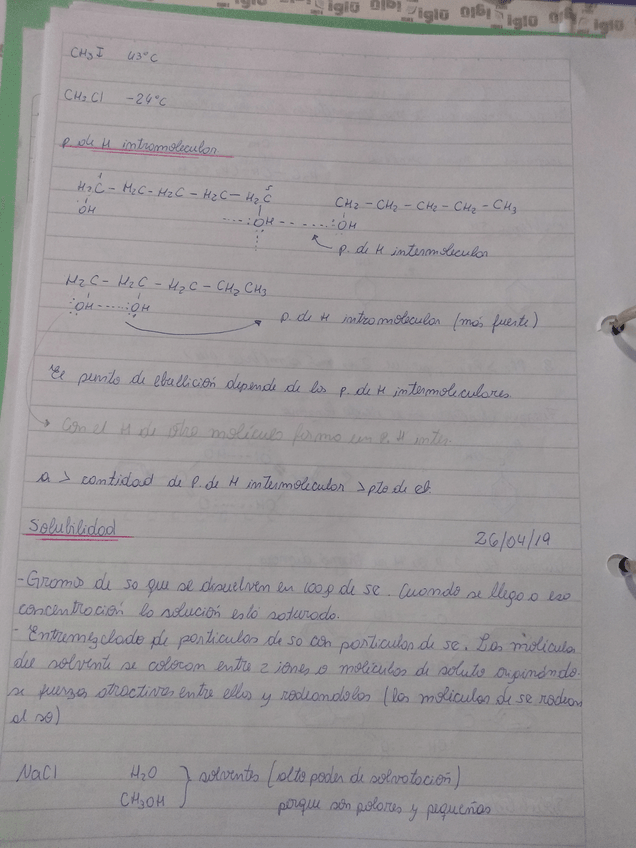 iglü iglü iglü iglü iglü
CH3I 43°C
CH3Cl -24°C
p. de H intramolecular
H2C - H2C - H2C - H2C - H2C
1 5
OH ....OH---....:OH
CH2 - CH2 - CH2 - CH2 - CH3
p. de H intermolecular
H2C - H2C - H2C - CH2 CH3
:OH---....:OH
p. de H intramolecular (más fuerte)
El punto de ebullición depende de los p. de H intermoleculares.
Con el H de otra molécula forma un p. H inter.
a > cantidad de p. de H intermolecular > pto de eb.
Solubilidad 26/04/19
-Gramos de so que se disuelven en 100g de se. Cuando se llega a esa
concentración la solución está saturada.
- Entremezclado de partículas de so con partículas de se. Las moléculas
del solvente se colocan entre 2 iones o moléculas de soluto originándo-
se fuerzas atractivas entre ellas y rodeandolas (las moléculas de se rodean
al so)
NaCl H2O } solventes (alto poder de solvatación)
CH3OH porque son polares y pequeñas